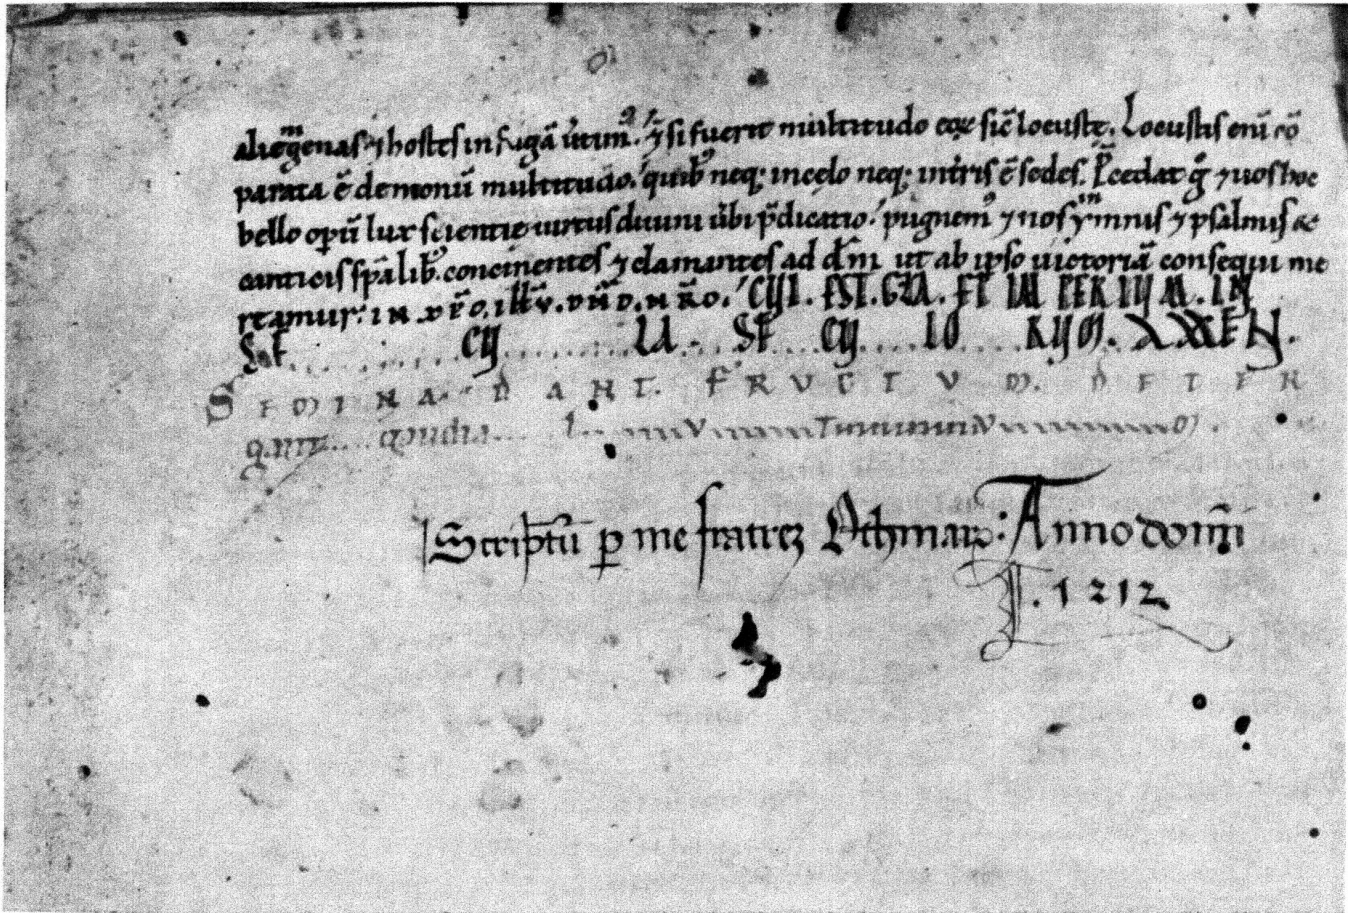 alie᷑genas ⁊ hostes in fugā u̾tim᷒. ⁊ si fuerit multitudo eoꝝ sic̄ locustę. Locustis eni᷑ cō
parata ē demonū multitudo. quib᷒ neq; in cęlo neq; in t̾ris ē sedes. P̄cedat g̊ ⁊ uos hoc
bello opū lux scientię uirtus diuini ūbi p̄dicatio. pugnem᷒ ⁊ nos ymnis ⁊ psalmis &
canticis sp̄alib᷒. concinentes ⁊ clamantes ad dn̄m ut ab ipso uictoriā consequi me
reamur. IN XP̄O. IH̄V. DN̄O. NR̄O. CUI. EST. GLA. ET IM PERIUM. IN
SE CU LA. SE CU LO RUM. AMEN.
SEMINA DANT. FRUCTUM. DE TER
Scriptū p me fratreȝ Othmarū: Anno domīni
1212